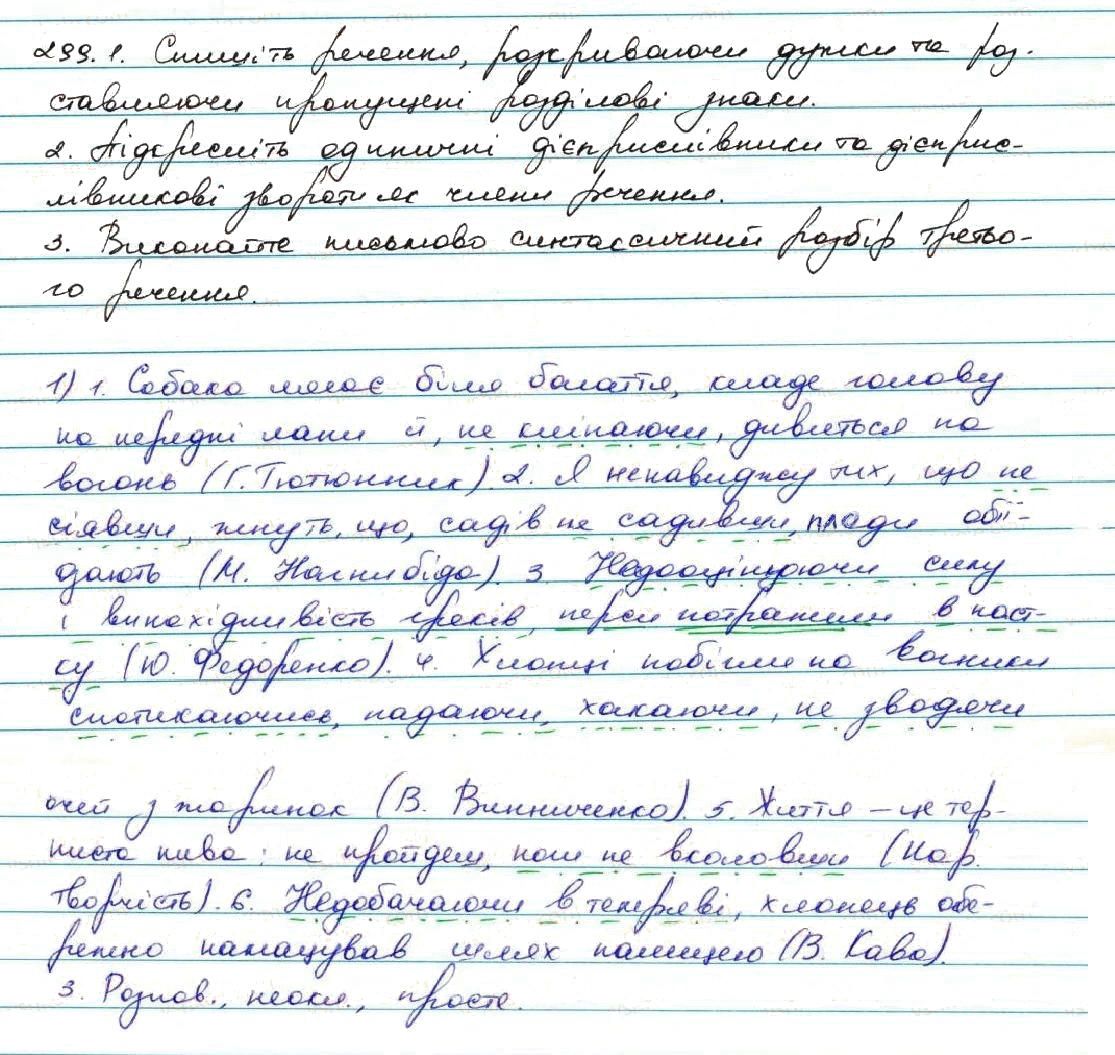 299.1. Спишіть речення, розкриваючи дужки та роз-
ставляючи пропущені розділові знаки.
2. Підкресліть одиничні дієприслівники та дієприс-
лівникові звороти як члени речення.
3. Виконайте письмово синтаксичний розбір третьо-
го речення.
1) 1. Собака лягає біля багаття, кладе голову
на передні лапи й, не кліпаючи, дивиться на
вогонь (Г. Тютюнник). 2. Я ненавиджу тих, що не
сіявши, жнуть, що, садів не садивши, плоди обії-
дають (М. Нагнибіда). 3. Недооцінюючи силу
і винахідливість греків, перси потрапили в паст-
ку (Ю. Федоренко). 4. Хлопці побігли на вогники
спотикаючись, падаючи, хекаючи, не зводячи
очей з жаринок (В. Винниченко). 5. Життя – це тер-
ниста нива: не пройдеш, ніг не вколовши (Нар.
творчість). 6. Недобачаючи в темряві, хлопець обе-
режно намацував шлях палицею (В. Кава).
3. Розпов., неокл., просте.